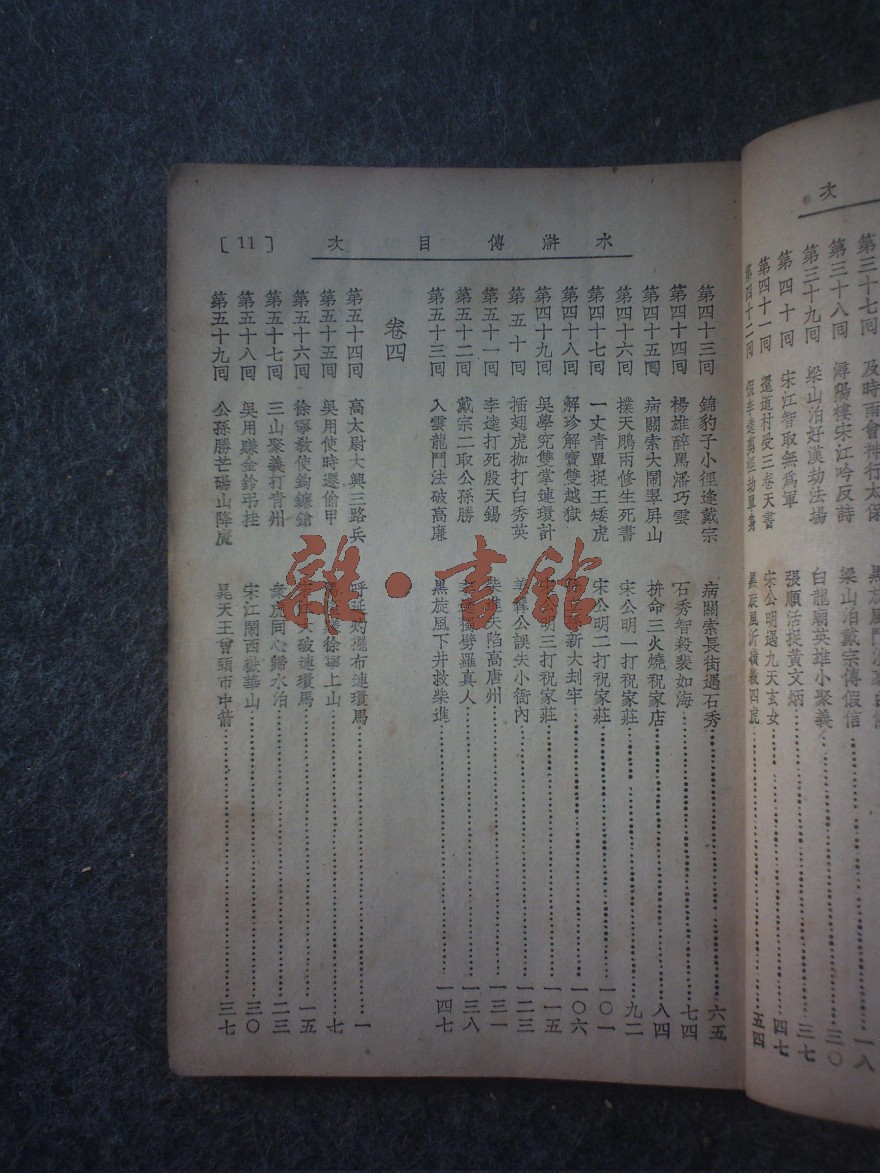 次
第三十七回 及時雨會神行太保
第三十八回 潯陽樓宋江吟反詩 梁山泊戴宗傳假信 一八
第三十九回 梁山泊好漢劫法場 白龍廟英雄小聚義 三〇
第四十回 宋江智取無爲軍 張順活捉黃文炳 三七
第四十一回 還道村受三卷天書 宋公明遇九天玄女 四七
第四十二回 假李逵剪徑劫單身 黑旋風沂嶺殺四虎 五四
水滸傳目次 [11]
第四十三回 錦豹子小徑逢戴宗 病關索長街遇石秀 六五
第四十四回 楊雄醉罵潘巧雲 石秀智殺裴如海 七四
第四十五回 病關索大鬧翠屏山 拚命三火燒祝家店 八四
第四十六回 撲天鵰兩修生死書 宋公明一打祝家莊 九二
第四十七回 一丈青單捉王矮虎 宋公明二打祝家莊 一〇一
第四十八回 解珍解寶雙越獄 新大刦牢 一〇六
第四十九回 吳學究雙掌連環計 宋公明三打祝家莊 一一五
第五十回 插翅虎枷打白秀英 美髯公誤失小衙內 一二三
第五十一回 李逵打死殷天錫 柴進失陷高唐州 一三一
第五十二回 戴宗二取公孫勝 李逵獨劈羅真人 一三八
第五十三回 入雲龍鬥法破高廉 黑旋風下井救柴進 一四七
卷四
第五十四回 高太尉大興三路兵 呼延灼擺布連環馬 一
第五十五回 吳用使時遷偷甲 徐寧上山 七
第五十六回 徐寧敎使鈎鐮鎗 破連環馬 一五
第五十七回 三山聚義打青州 衆虎同心歸水泊 二三
第五十八回 吳用賺金鈴弔挂 宋江鬧西嶽華山 三〇
第五十九回 公孫勝芒碭山降魔 晁天王曾頭市中箭 三七
雜·書館